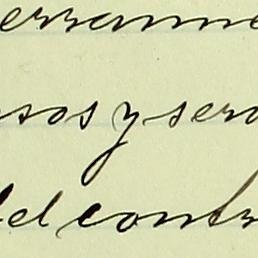 erramie
esos y sera
del contr